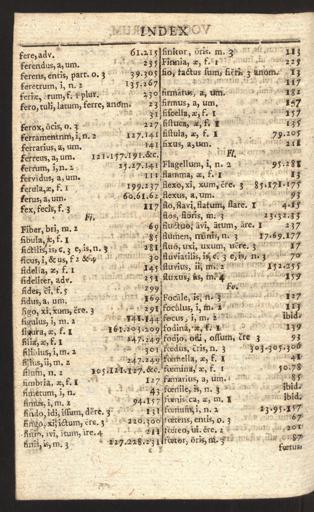 INDEX
fere, adv. 61.215
ferendus, a, um. 235
ferens, entis, part. o. 3 39.305
feretrum, i, n. 2 135.267
feriæ, arum, f. 1 plur. 230
fero, tuli, latum, ferre, anom. 23
31
ferox, ōcis, o. 3 227
ferramentum, i, n. 2 127.141
ferrarius, a, um. 141
ferreus, a, um. 121.157.191.&c.
ferrum, i, n. 2 25.27.141
fervidus, a, um. 111
ferula, æ, f. 1 199.237
ferus, a, um. 60.61.62
fex, fecis, f. 3 117
Fi.
Fiber, bri, m. 2 69
fibula, æ, f. 1 85
fictilis, is, c. 3 e, is, n. 3 281
ficus, i, & us, f. 2 & 4 30
fidelia, æ, f. 1 145
fideliter, adv. 251
fides, ĕi, f. 5 299
fidus, a, um. 169
figo, xi, xum, ĕre. 3 291
figulus, i, m. 2 141.144
figura, æ, f. 1 161.203.209
filia, æ, f. 1 247.249
filiolus, i, m. 2 303
filius, ii, m. 2 247.249
filum, n. 2 105.121.127.&c.
fimbria, æ, f. 1 127
fimetum, i, n. 43
fimus, i, m. 2 94.157
findo, idi, issum, dĕre. 3 131
fingo, xi, ictum, ĕre. 3 220.300
finio, ivi, itum, ire. 4 211
finis, is, m. 3 227.228.231
finitor, ōris, m. 3 113
Finnia, æ, f. 1 225
fio, factus sum, fiĕri. 3 anom. 13
17
firmatus, a, um. 182
firmus, a, um. 157
fiscella, æ, f. 1 157
fistuca, æ, f. 1 135
fistula, æ, f. 1 79.205
fixus, a, um. 211
Fl.
Flagellum, i, n. 2 95.281
flamma, æ, f. 1 13
flexo, xi, xum, ĕre. 3 85.171.175
flexus, a, um. 93
flo, flavi, flatum, flare. 1 4.15
flos, flōris, m. 3 23.32.35
fluctuo, avi, ātum, are. 1 237
flumen, mĭnis, n. 3 17.69.177
fluo, uxi, uxum, uĕre. 3 17
fluviatilis, is, c. 3 e, is, n. 3 70
fluvius, ii, m. 2 152.255
fluxus, us, m. 4 159
Fo.
Focăle, is, n. 3 127
foculus, i, m. 2 113
focus, i, m. 2 ibid.
fodina, æ, f. 1 139
fodio, odi, ossum, ĕre 3 93
fœdus, ĕris, n. 3 303.305.306
fœmella, æ, f. 1 41
fœmina, æ, f. 1 50.78
fœmarius, a, um. 85
fœnile, is, n. 3 ibid.
ibid.
fœnum, i, n. 2 23.95.157
fœtens, entis, o. 3 67
fœteo, ui. ēre. 2 201
fœtor, ōris, m. 3 87
fœtus,